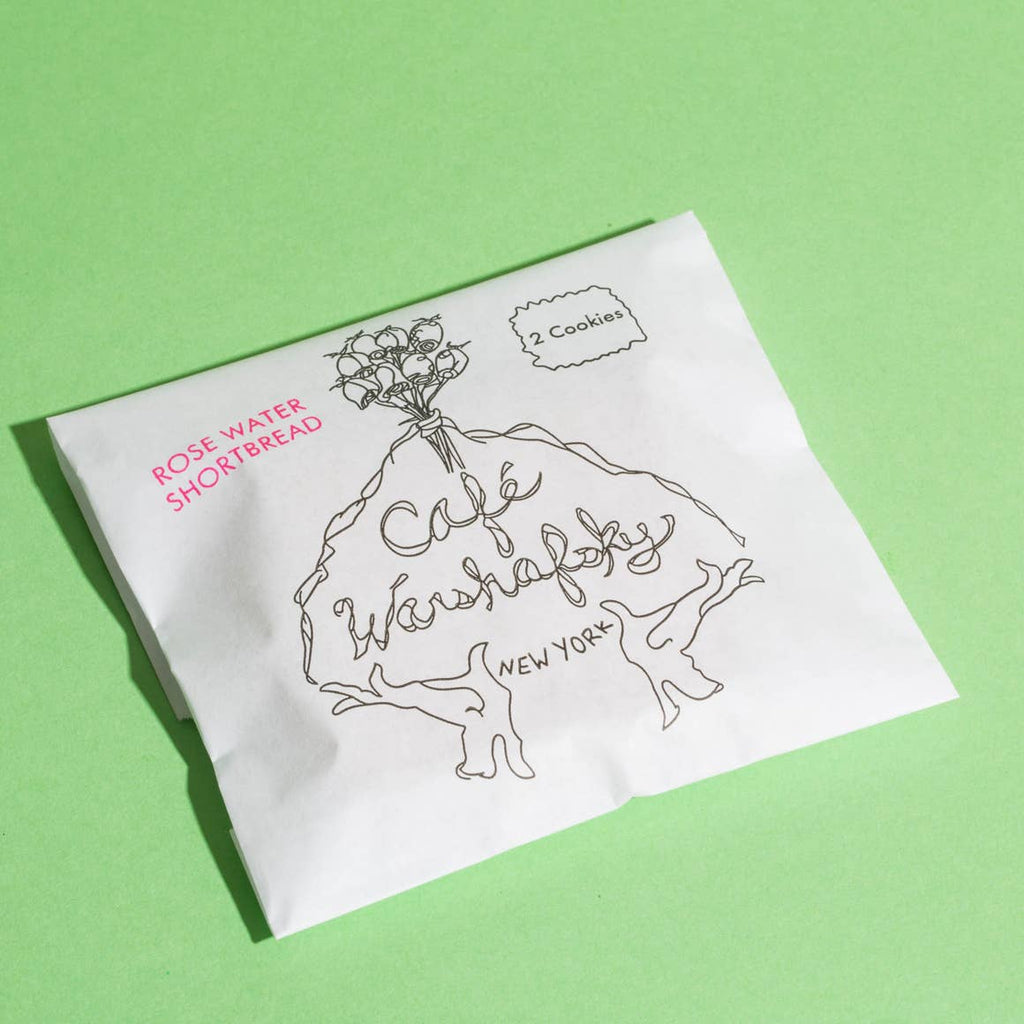 2 Cookies
ROSE WATER
SHORTBREAD
Café
Warshafsky
NEW YORK